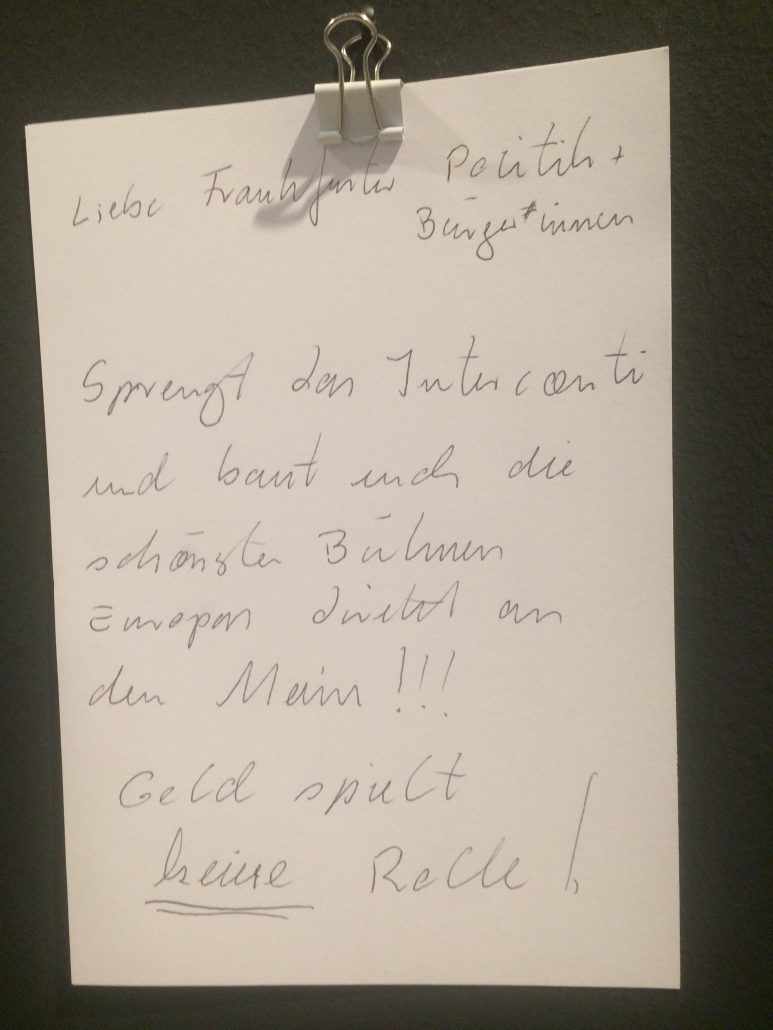 Liebe Frankfurter Politik +
Bürger*innen
Sprengt das Interconti
und baut euch die
schönsten Bühnen
Europas direkt an
den Main!!!
Geld spielt
keine Rolle!